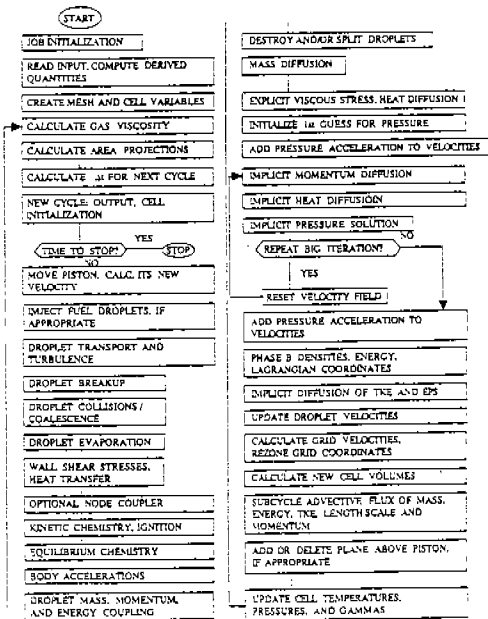 START
JOB INITIALIZATION
READ INPUT, COMPUTE DERIVED
QUANTITIES
CREATE MESH AND CELL VARIABLES
CALCULATE GAS VISCOSITY
CALCULATE AREA PROJECTIONS
CALCULATE Δt FOR NEXT CYCLE
NEW CYCLE: OUTPUT, CELL
INITIALIZATION
YES
TIME TO STOP?
STOP
NO
MOVE PISTON, CALC. ITS NEW
VELOCITY
INJECT FUEL DROPLETS, IF
APPROPRIATE
DROPLET TRANSPORT AND
TURBULENCE
DROPLET BREAKUP
DROPLET COLLISIONS /
COALESCENCE
DROPLET EVAPORATION
WALL SHEAR STRESSES,
HEAT TRANSFER
OPTIONAL NODE COUPLER
KINETIC CHEMISTRY, IGNITION
EQUILIBRIUM CHEMISTRY
BODY ACCELERATIONS
DROPLET MASS, MOMENTUM,
AND ENERGY COUPLING
DESTROY AND/OR SPLIT DROPLETS
MASS DIFFUSION
EXPLICIT VISCOUS STRESS, HEAT DIFFUSION
INITIALIZE 1st GUESS FOR PRESSURE
ADD PRESSURE ACCELERATION TO VELOCITIES
IMPLICIT MOMENTUM DIFFUSION
IMPLICIT HEAT DIFFUSION
IMPLICIT PRESSURE SOLUTION
NO
REPEAT BIG ITERATION?
YES
RESET VELOCITY FIELD
ADD PRESSURE ACCELERATION TO
VELOCITIES
PHASE B DENSITIES, ENERGY,
LAGRANGIAN COORDINATES
IMPLICIT DIFFUSION OF TKE AND EPS
UPDATE DROPLET VELOCITIES
CALCULATE GRID VELOCITIES,
REZONE GRID COORDINATES
CALCULATE NEW CELL VOLUMES
SUBCYCLE ADVECTIVE FLUX OF MASS,
ENERGY, TKE, LENGTH SCALE AND
MOMENTUM
ADD OR DELETE PLANE ABOVE PISTON,
IF APPROPRIATE
UPDATE CELL TEMPERATURES,
PRESSURES, AND GAMMAS